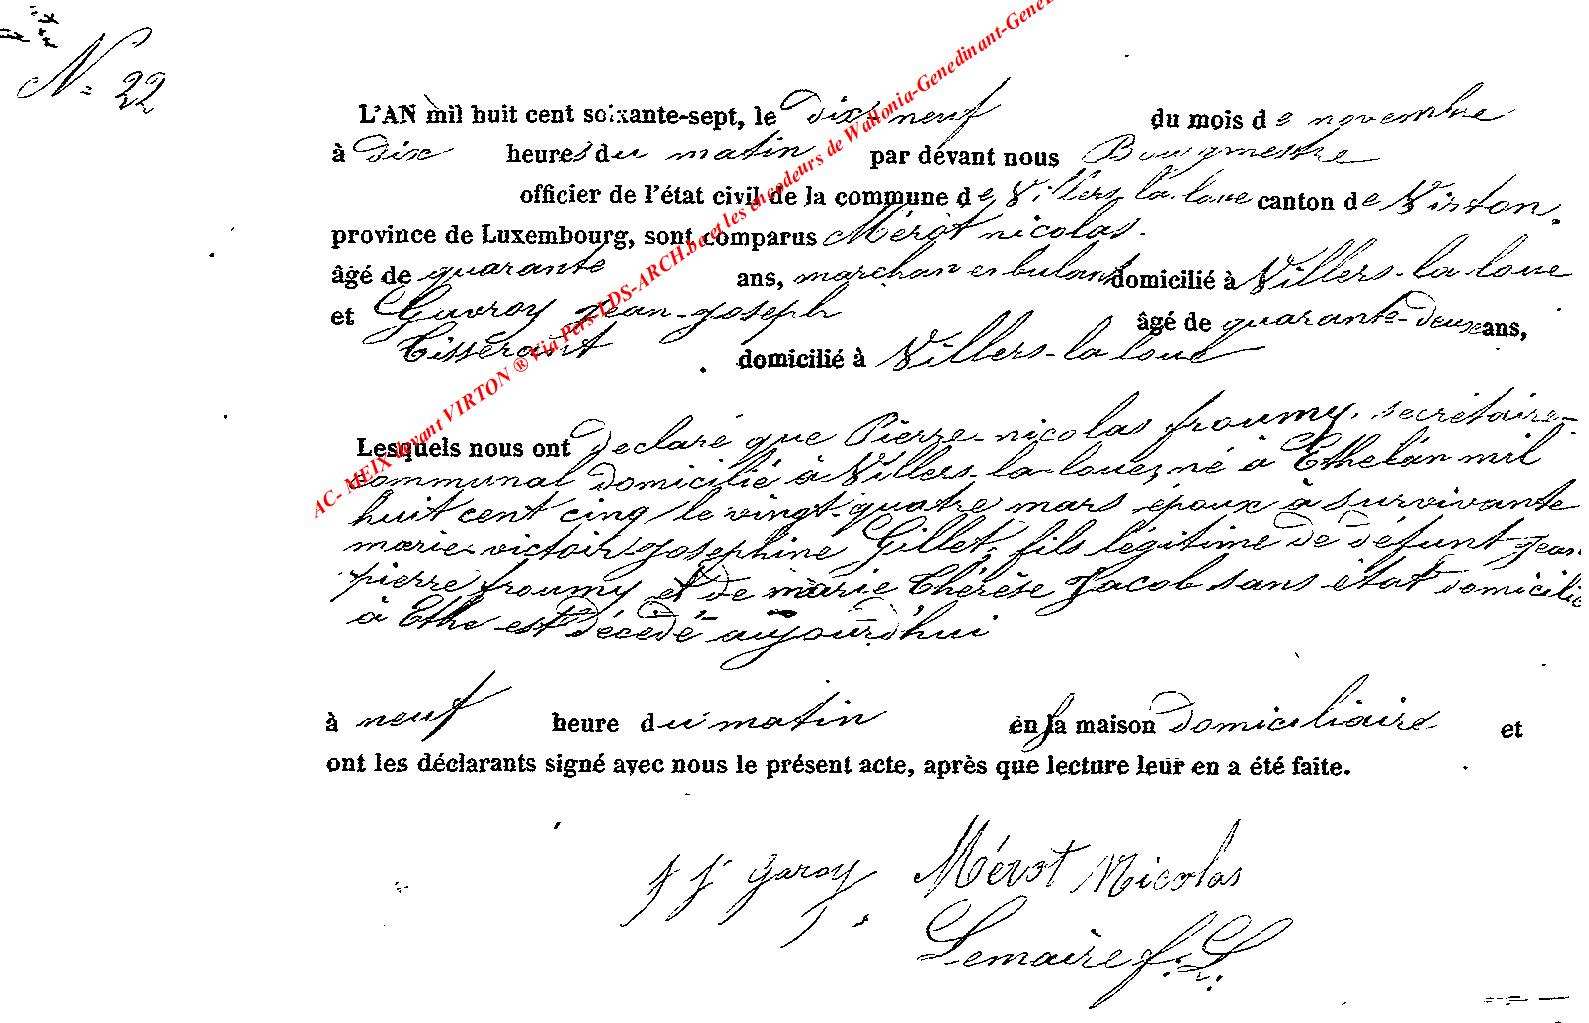 N° 22
L'AN mil huit cent soixante-sept, le dix neuf du mois de novembre
à dix heures du matin par devant nous Bourgmestre
officier de l'état civil de la commune de Villers-la-loue canton de Virton.
province de Luxembourg, sont comparus Mérot nicolas.
âgé de quarante ans, marchan enbulant domicilié à Villers-la loue
et Guvroy jean-joseph âgé de quarante-deux ans,
tisserant domicilié à Villers-la loue
Lesquels nous ont declaré que Pierre-nicolas froumy, secrétaire-
communal domicilié à Villers-la-loue, né à Ethe lan mil
huit cent cinq le vingt-quatre mars époux à survivante
marie-victoir-josephine Gillet, fils légitime de défunt jean
pierre froumy et de marie thérèse Jacob sans état domicilié
à Ethe est décédé aujourd'hui
à neuf heure du matin en sa maison domiciliaire et
ont les déclarants signé avec nous le présent acte, après que lecture leur en a été faite.
J J Garoy Mérot Nicolas
Lemaire f. L.
AC- MEIX devant VIRTON ® Via Pers-LDS-ARCH.be et les encodeurs de Wallonia-Genedinant-GeneL